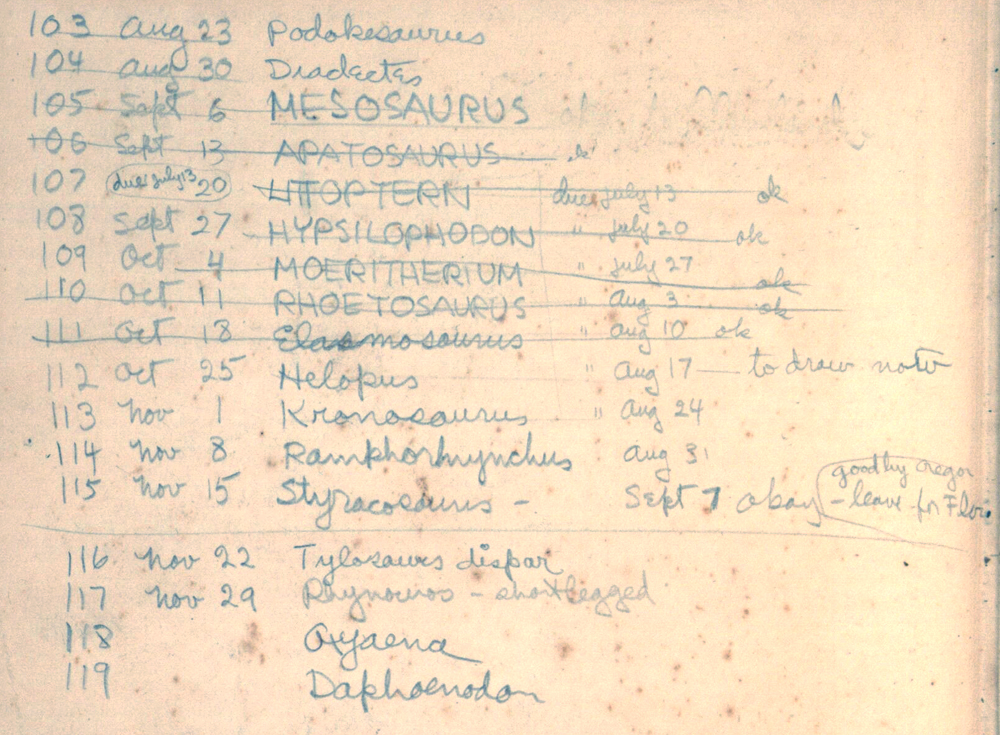 103 Aug 23 Podokesaurus
104 Aug 30 Diadectes
105 Sept 6 MESOSAURUS
106 Sept 13 APATOSAURUS
107 due July 13 20 LITOPTERN due July 13 ok
108 Sept 27 HYPSILOPHODON " July 20 ok
109 Oct 4 MOERITHERIUM " July 27 ok
110 Oct 11 RHOETOSAURUS " Aug 3 ok
111 Oct 18 Elasmosaurus " Aug 10 ok
112 Oct 25 Helopus " Aug 17 — to draw
113 Nov 1 Kronosaurus " Aug 24
114 Nov 8 Ramphorhynchus Aug 31
115 Nov 15 Styracosaurus - Sept 7 okay goodby oregon - leave for Flor.
116 Nov 22 Tylosaurs dispar
117 Nov 29 - shortlegged
118 Oxyaena
119 Daphoenodon